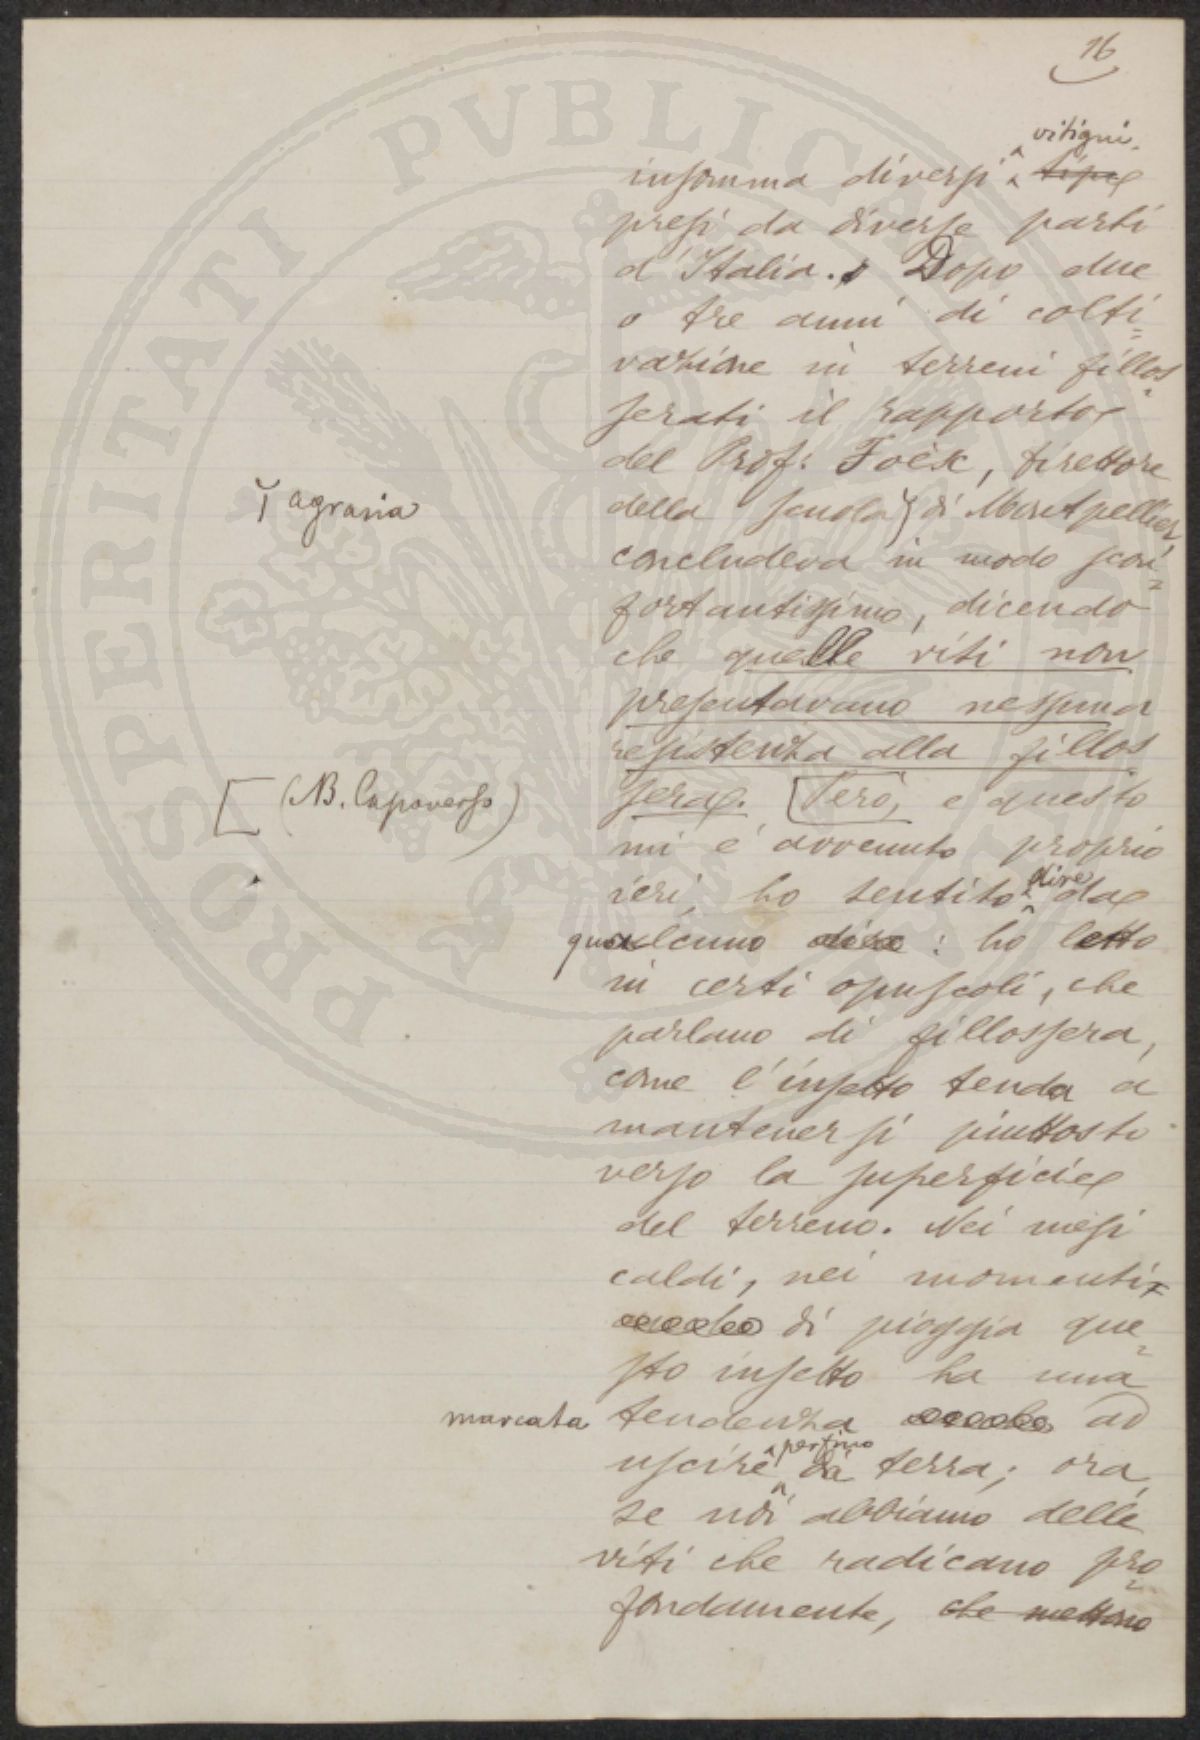 16
vitigni.
insomma diversi tipi
presi da diverse parti
d'Italia. Dopo due
o tre anni di colti=
vazione in terreni fillos=
serati il rapporto
del Prof. Foëx, direttore
agraria
della scuola di Montpellier,
concludeva in modo scon=
fortantissimo, dicendo
che quelle viti non
presentavano nessuna
resistenza alla fillos
[ (NB. Capoverso)
sera. [Però, e questo
mi è avvenuto proprio
ieri, ho sentito dire da
qualcuno dire: ho letto
in certi opuscoli, che
parlano di fillossera,
come l'insetto tenda a
mantenersi piuttosto
verso la superficie
del terreno. Nei mesi
caldi, nei momenti
di pioggia que=
sto insetto ha una
marcata tendenza ad
uscire perfino da terra; ora,
se noi abbiamo delle
viti che radicano pro=
fondamente, che mettono
PROSPERITATI PVBLICAE